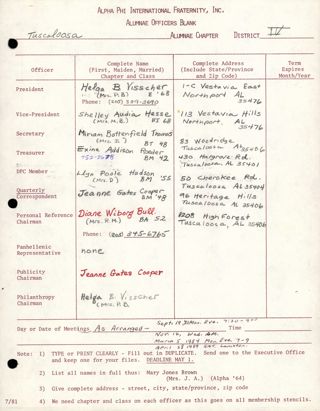 ALPHA PHI INTERNATIONAL FRATERNITY, INC.
ALUMNAE OFFICERS BLANK
Tuscaloosa ALUMNAE CHAPTER DISTRICT IV
Officer
Complete Name
(First, Maiden, Married)
Chapter and Class
Complete Address
(Include State/Province
and Zip Code)
Term
Expires
Month/Year
President
Helga B. Visscher
(Mrs. P.B.) '68
Phone: (205)
1-C Vestavia East
Northport AL
35476
Vice-President
Shelley Audia Hesse
113 Vestavia Hills
Northport, AL
35476
Secretary
Miriam Bottenfield Thomas
BT 48
83 Woodridge
Tuscaloosa
Treasurer
Poster
BM 42
430 Hargrove Rd.
Tuscaloosa AL 35401
DPC Member
Poole Hudson
(Mrs. D) BM '55
50 Cherokee Rd.
Tuscaloosa AL 35404
Quarterly
Correspondent
Jeanne Gates Cooper
BM '48
96 Heritage Hills
Tuscaloosa AL 35406
Personal Reference
Chairman
Diane Wiborg Bull
BA 52
Phone: (205) 345-6765
1208 High Forest
Tuscaloosa, AL 35406
Panhellenic
Representative
none
Publicity
Chairman
Jeanne Gates Cooper
Philanthropy
Chairman
Helga B. Visscher
(Mrs. P.B.)
Day or Date of Meetings As Arranged - Time
Note: 1) TYPE or PRINT CLEARLY - Fill out in DUPLICATE. Send one to the Executive Office
and keep one for your files. DEADLINE MAY 1.
2) List all names in full thus: Mary Jones Brown
(Mrs. J. A.) (Alpha '64)
3) Give complete address - street, city, state/province, zip code
7/81 4) We need chapter and class on each officer as this goes on all membership stencils.